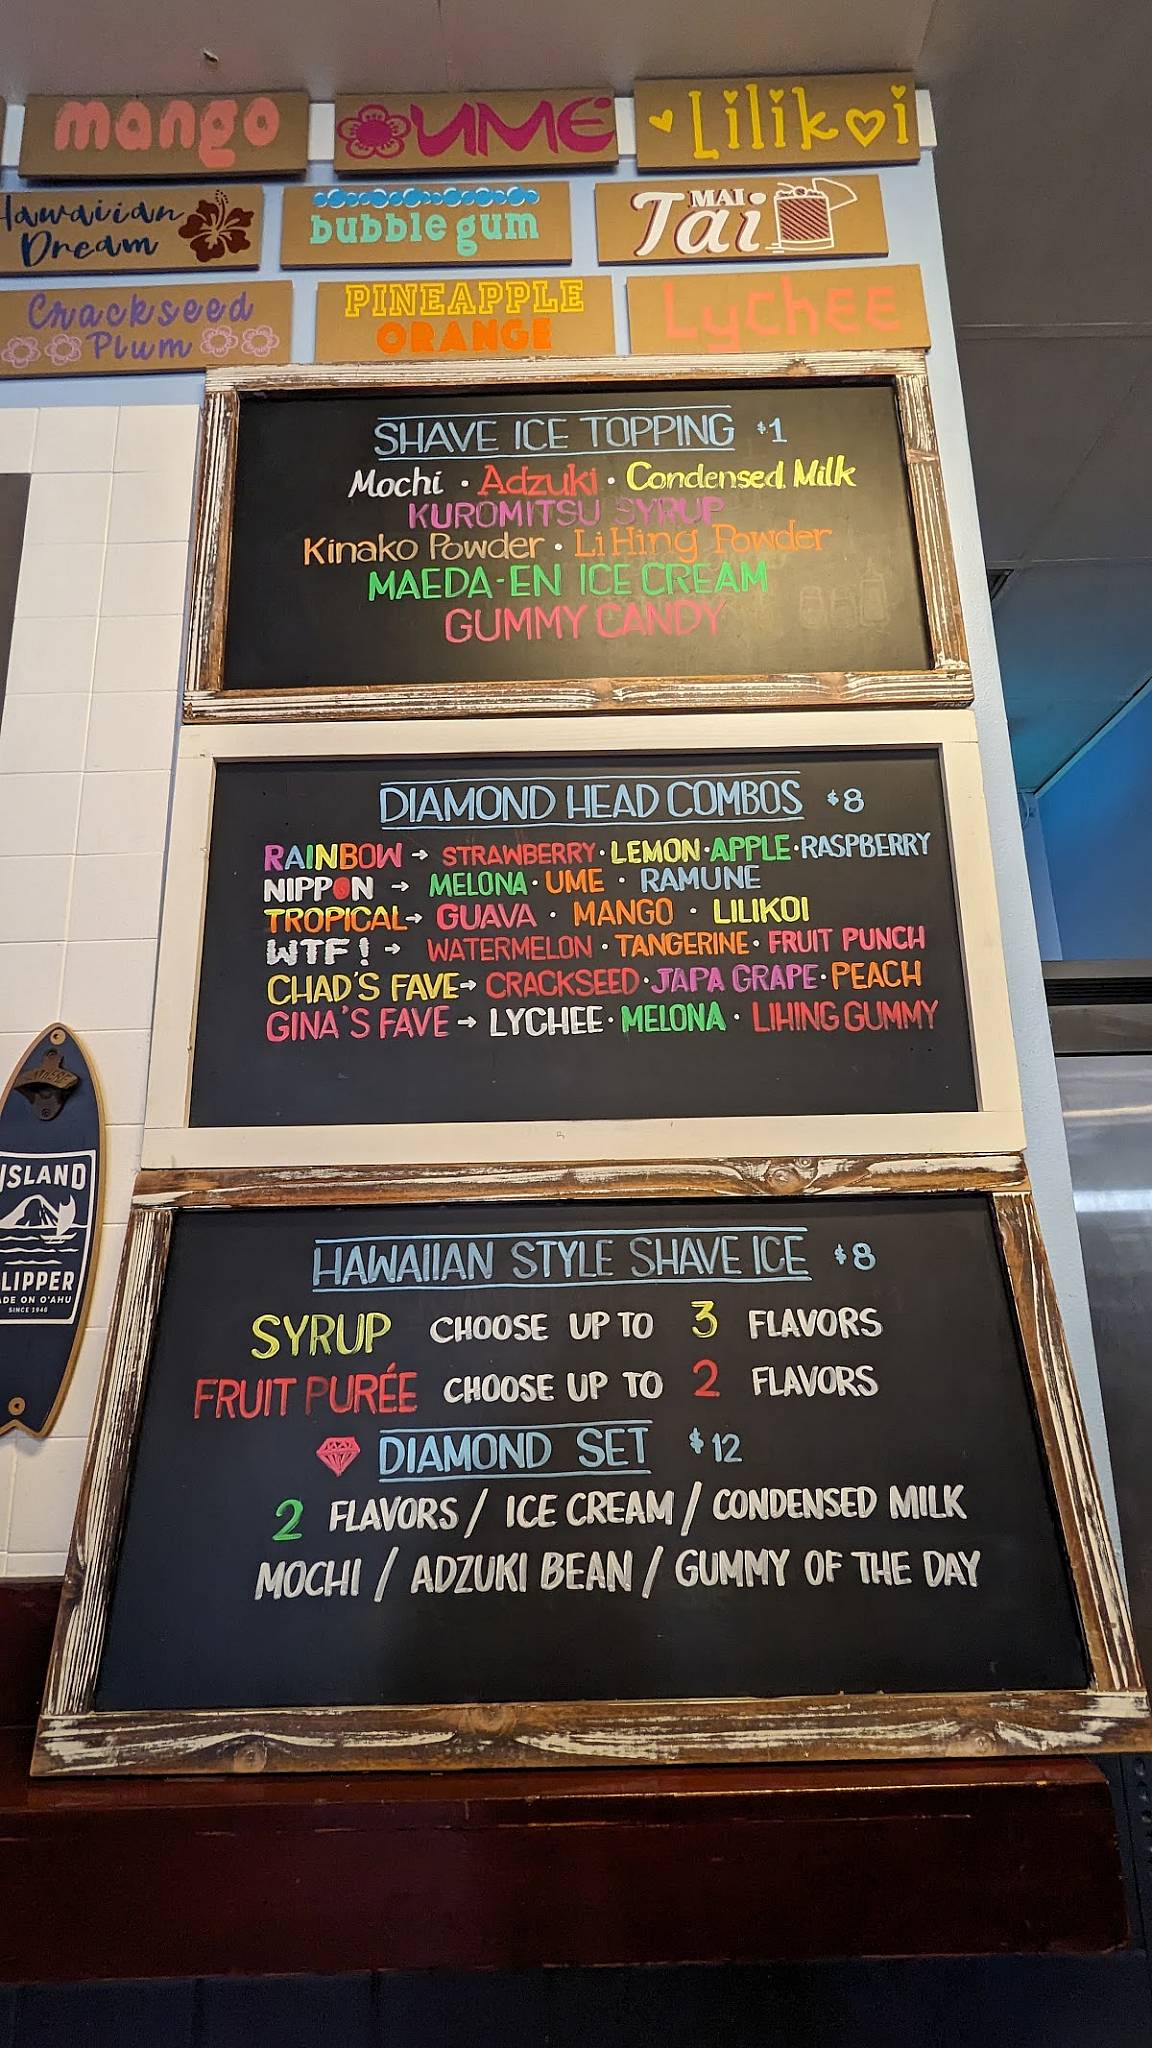 mango
UME
Lilikoi
Hawaiian
Dream
bubble gum
MAI
Tai
Crackseed
Plum
PINEAPPLE
ORANGE
LycHEE
SHAVE ICE TOPPING $1
Mochi · Adzuki · Condensed Milk
KUROMITSU SYRUP
Kinako Powder · Li Hing Powder
MAEDA-EN ICE CREAM
GUMMY CANDY
DIAMOND HEAD COMBOS $8
RAINBOW → STRAWBERRY · LEMON · APPLE · RASPBERRY
NIPPON → MELONA · UME · RAMUNE
TROPICAL → GUAVA · MANGO · LILIKOI
WTF! → WATERMELON · TANGERINE · FRUIT PUNCH
CHAD'S FAVE → CRACKSEED · JAPA GRAPE · PEACH
GINA'S FAVE → LYCHEE · MELONA · LIHING GUMMY
ISLAND
LIPPER
ADE ON O'AHU
SINCE 1946
HAWAIIAN STYLE SHAVE ICE $8
SYRUP CHOOSE UP TO 3 FLAVORS
FRUIT PURÉE CHOOSE UP TO 2 FLAVORS
DIAMOND SET $12
2 FLAVORS / ICE CREAM / CONDENSED MILK
MOCHI / ADZUKI BEAN / GUMMY OF THE DAY